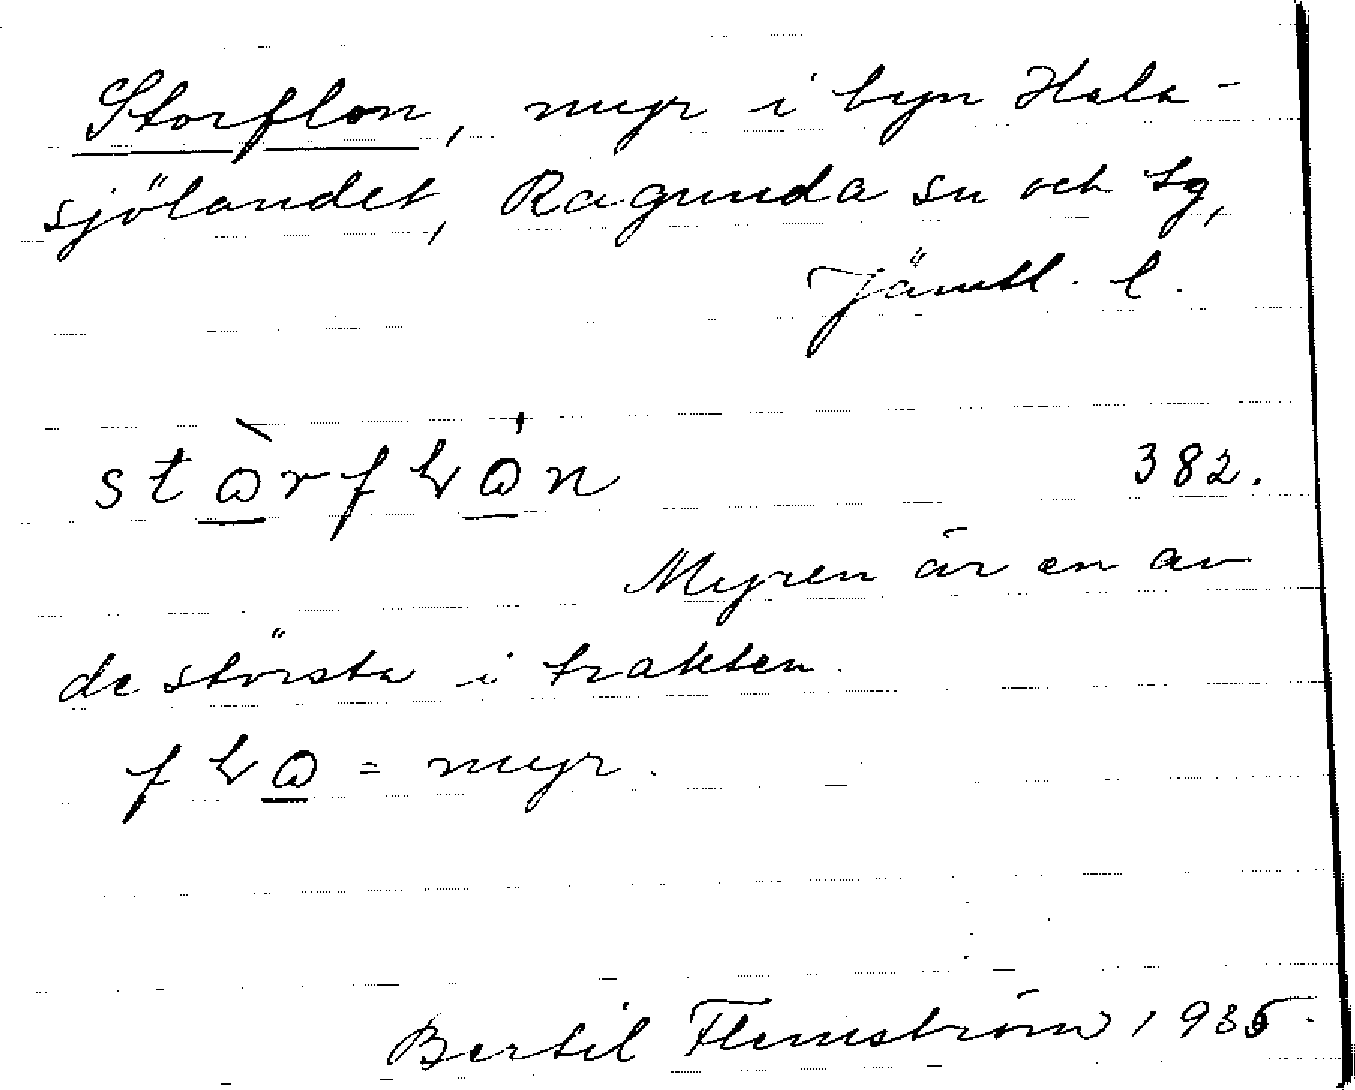 Storflon, myr i byn Hala-
sjölandet, Ragunda sn och tg,
Jämtl. l.
stɷ̀rfɽɷ́n 382.
Myren är en av
de största i trakten.
fɽɷ = myr.
Bertil Flemström 1935.